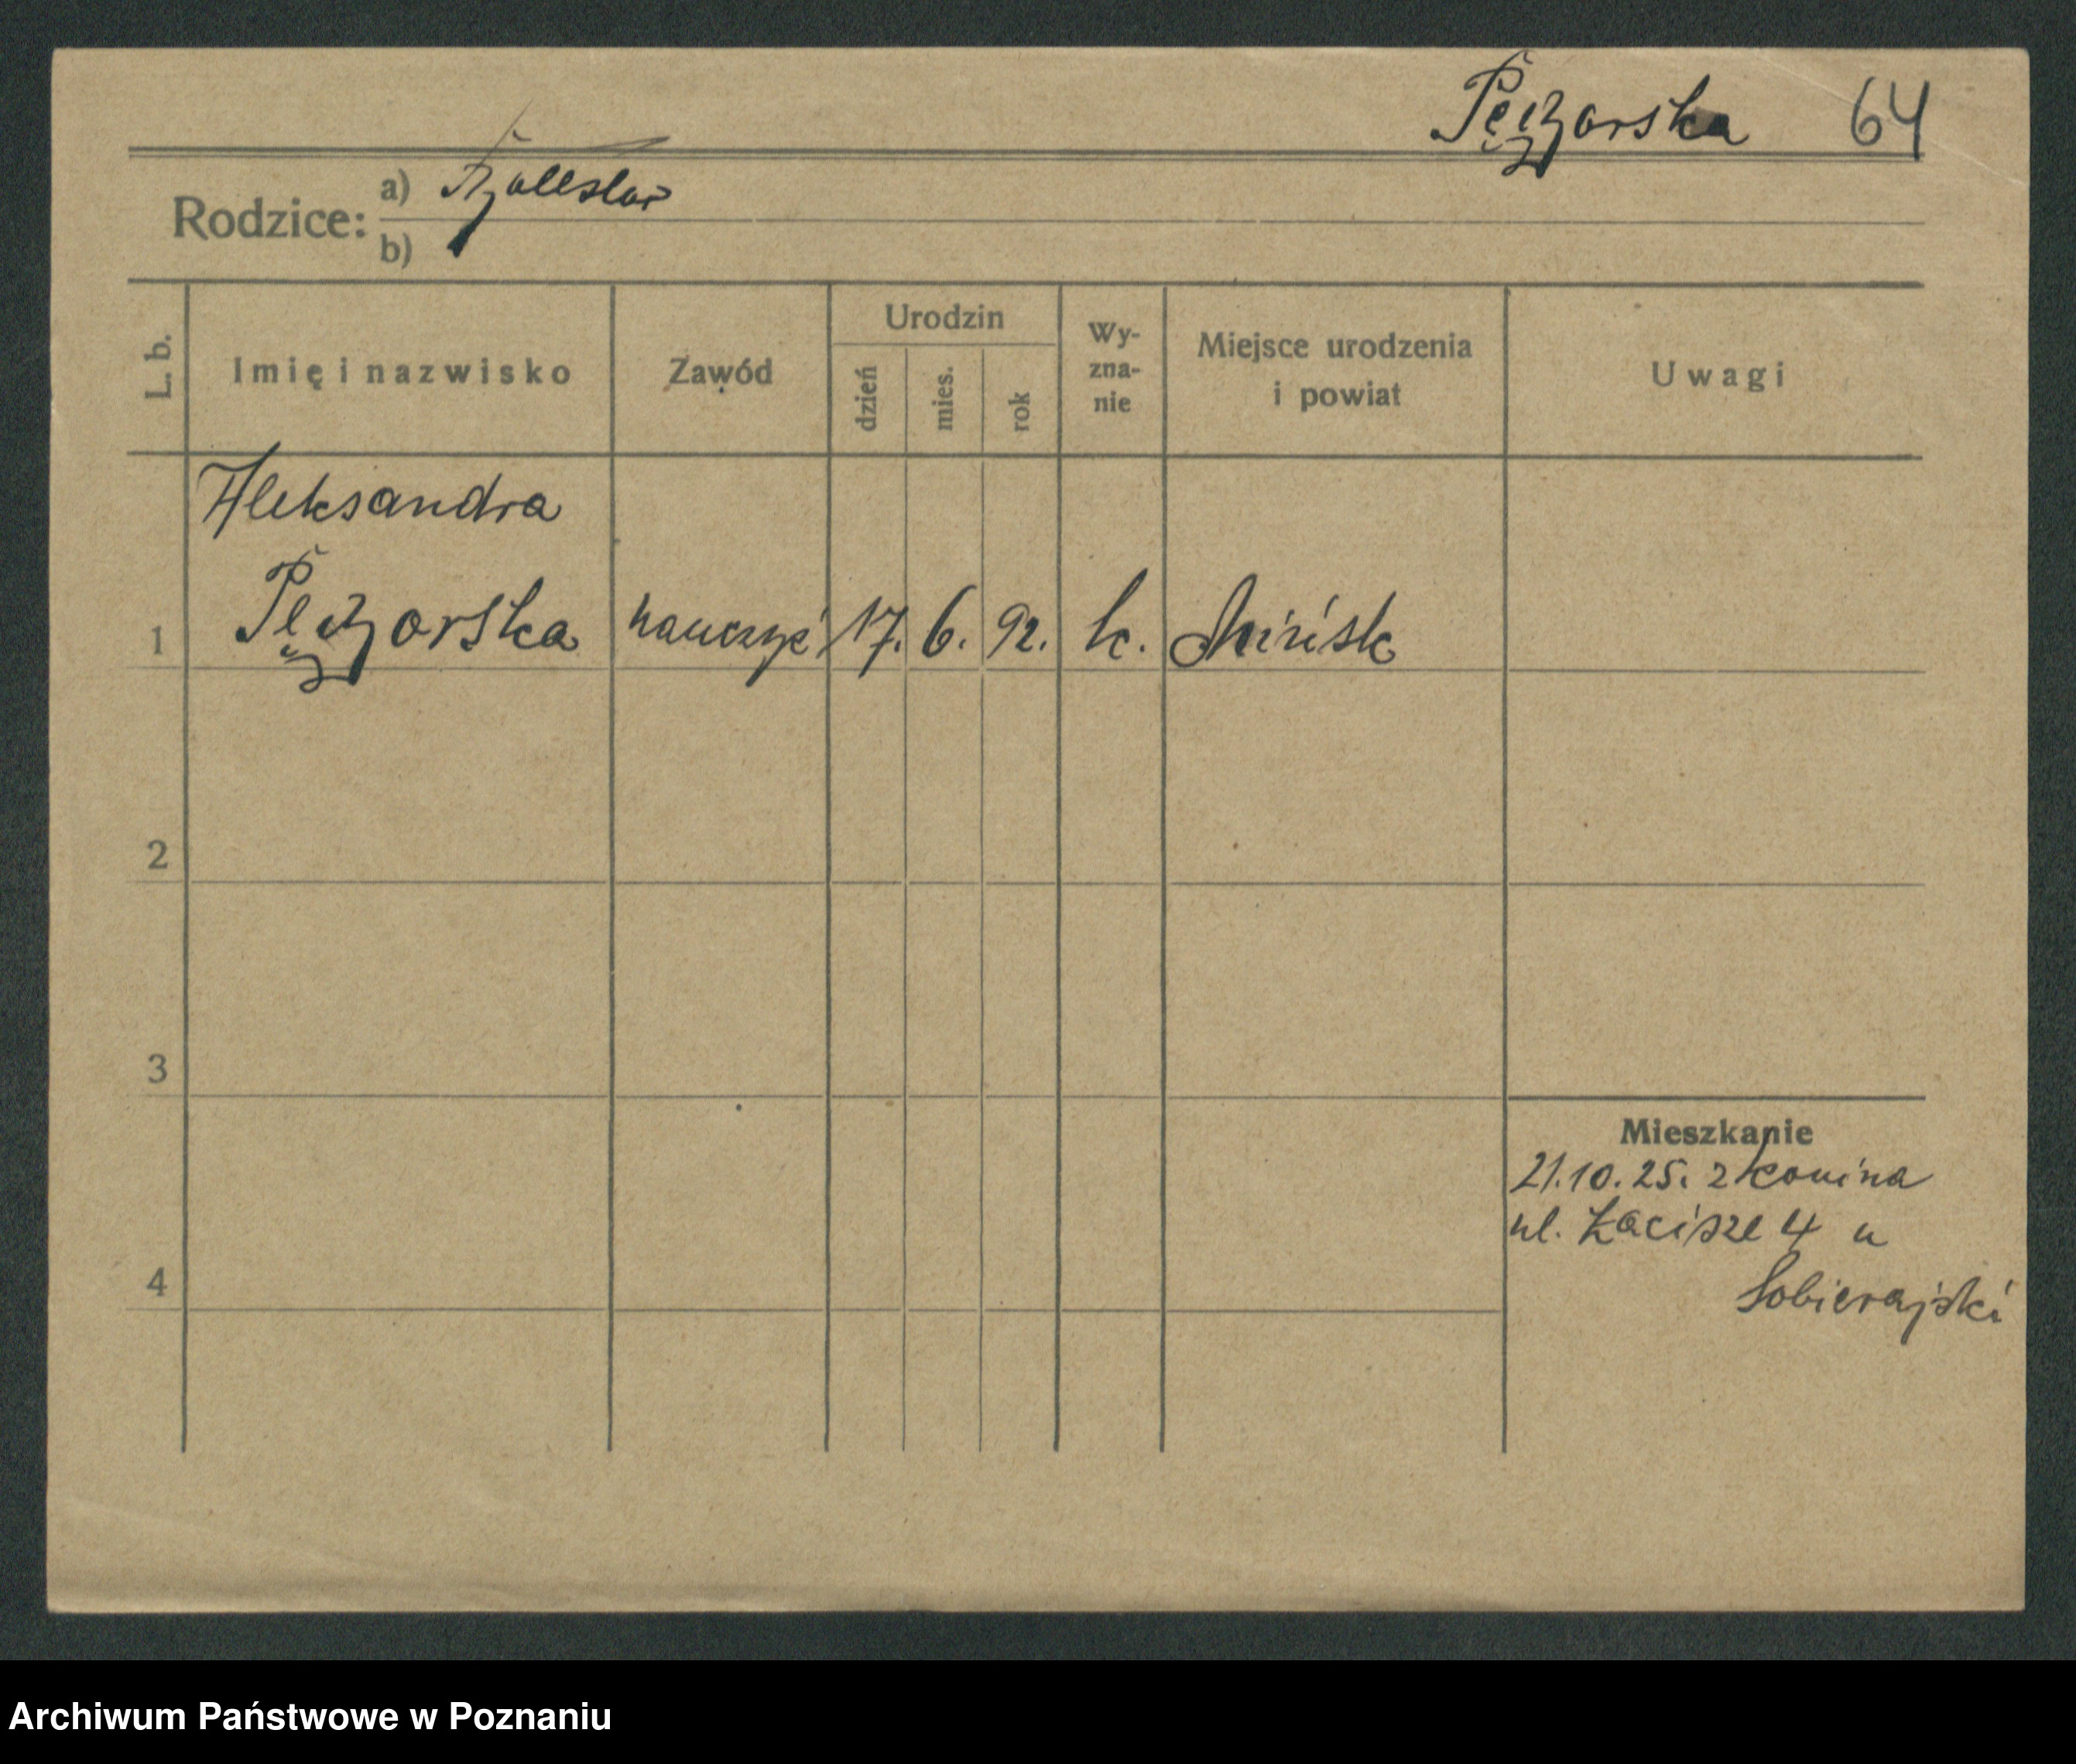 Pęczorska 64
Rodzice: a)
b)
L. b.
Imię i nazwisko
Zawód
Urodzin
dzień
mies.
rok
Wy-
zna-
nie
Miejsce urodzenia
i powiat
Uwagi
Aleksandra
1 Pęczorska nauczyć 17. 6. 92. k. Mińsk
2
3
4
Mieszkanie
21.10.25. z Konina
ul. Zacisze 4 u
Sobierajski
Archiwum Państwowe w Poznaniu